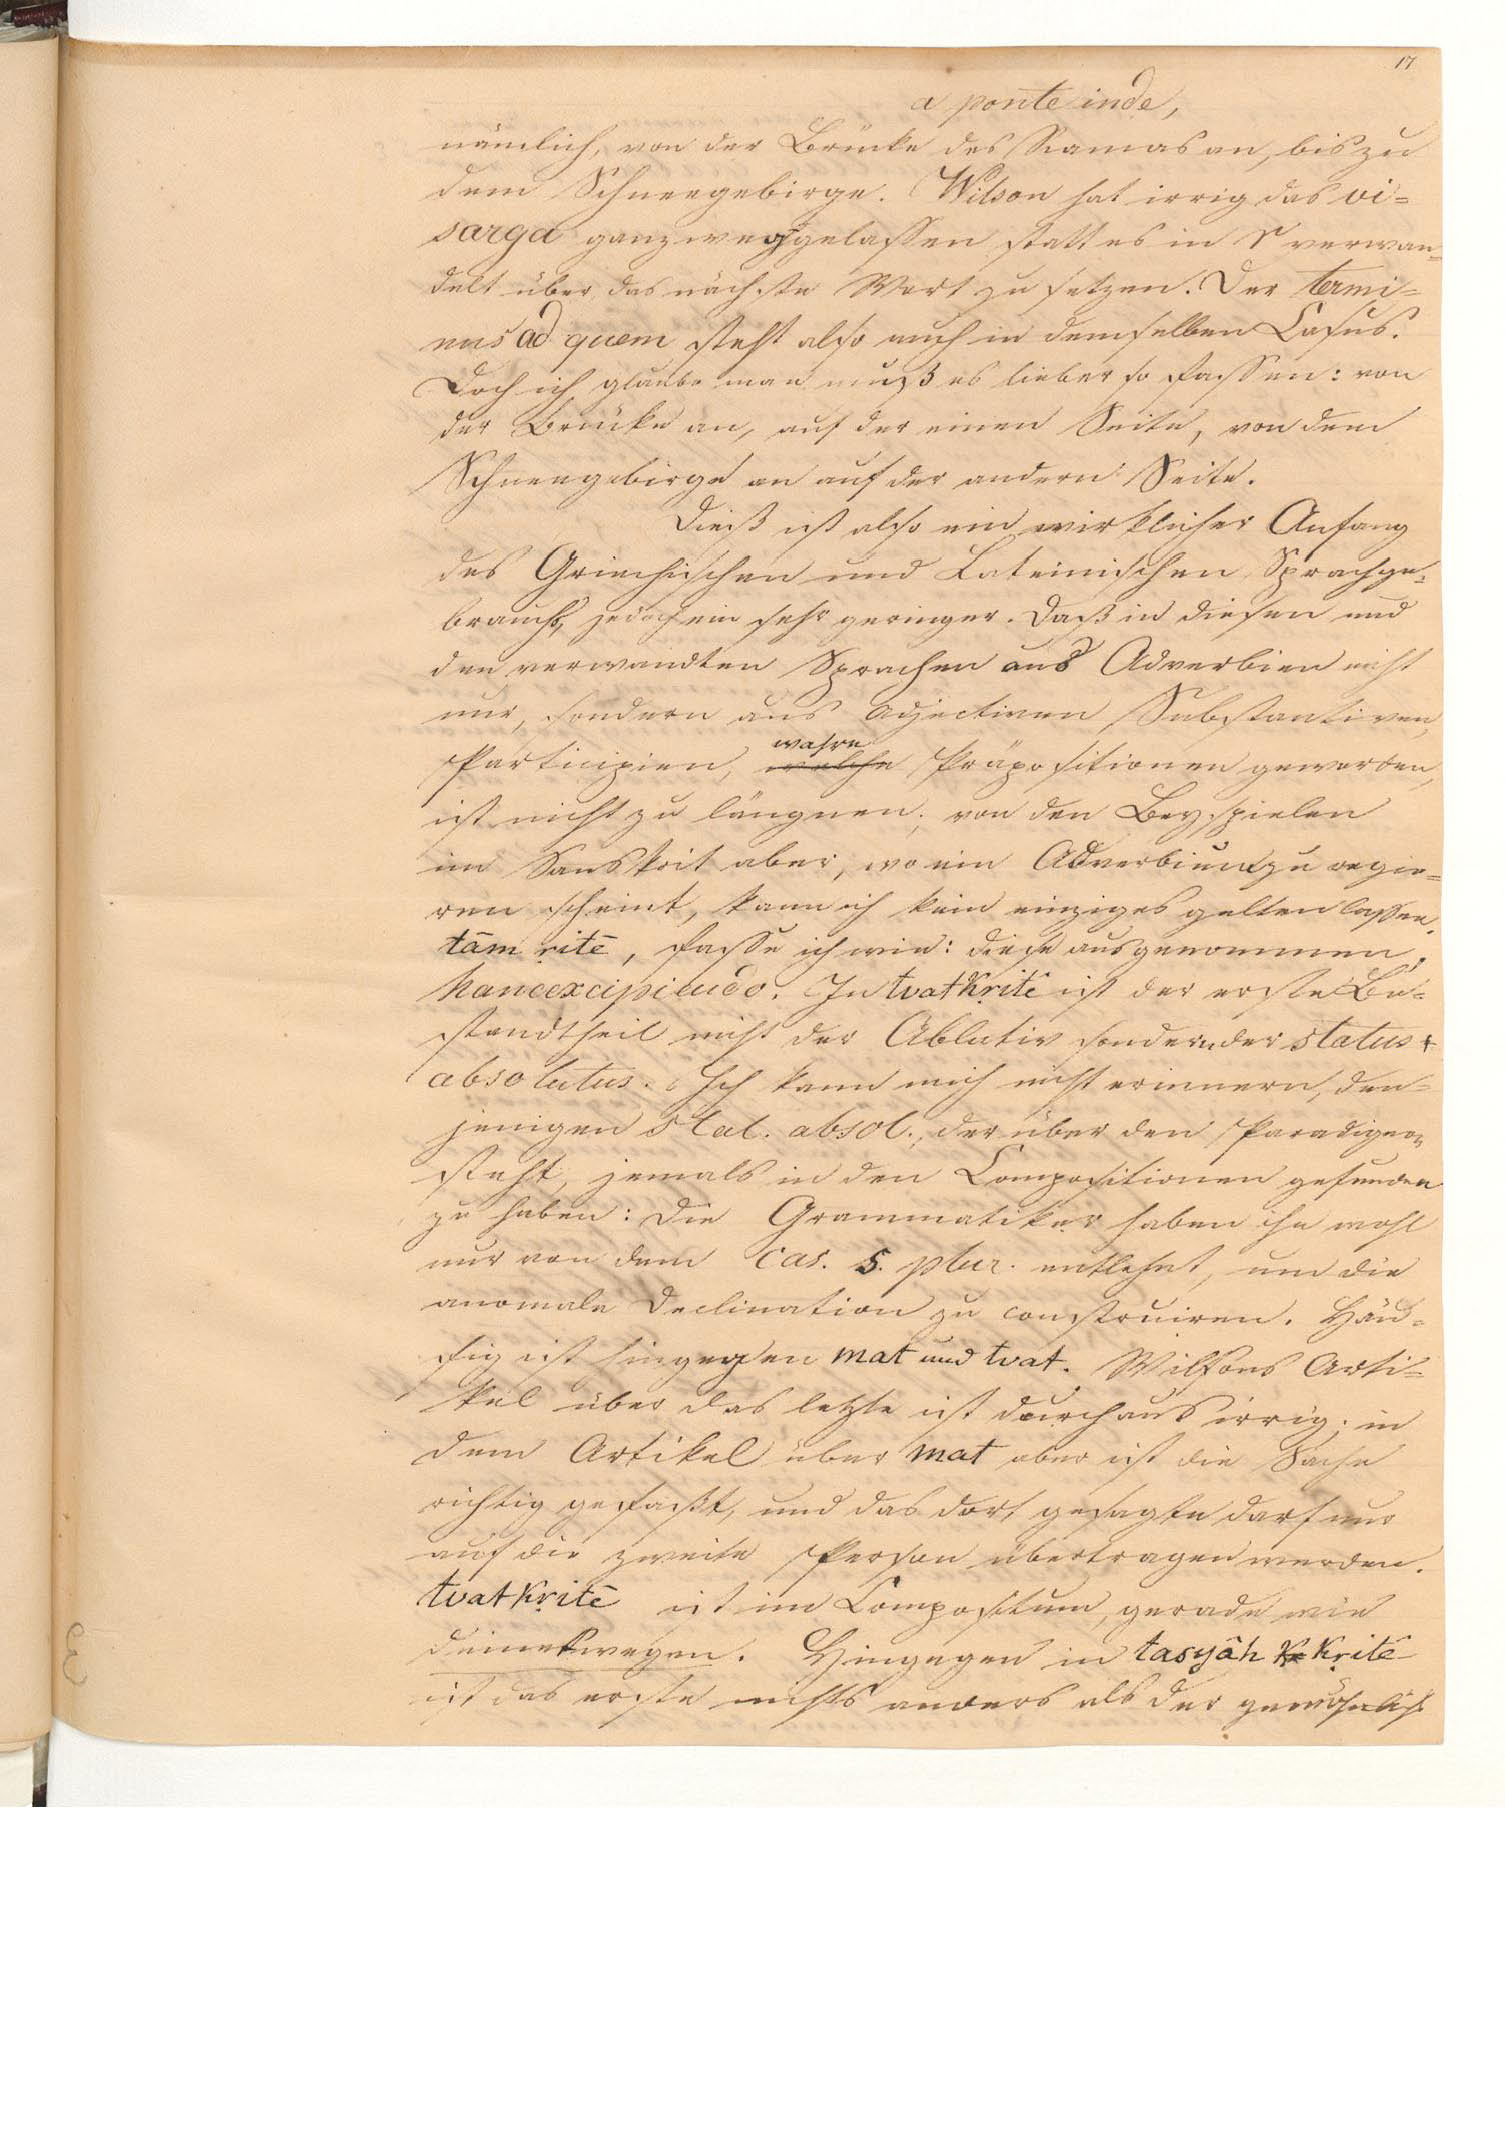 17
a ponte inde,
nämlich, von der Brücke des Ramas an, bis zu
dem Schneegebirge. Wilson hat irrig das vi=
sarga ganz weggelassen statt es in r verwan=
delt über das nächste Wort zu setzen. Der termi=
nus ad quem steht also auch in demselben Casus.
Doch ich glaube man muß es lieber so fassen: von
der Brücke an, auf der einen Seite, von dem
Schneegebirge an auf der andern Seite.
Dieß ist also ein wirklicher Anfang
des Griechischen und Lateinischen Sprachge=
brauchs, jedoch ein sehr geringer. Daß in diesen und
den verwandten Sprachen aus Adverbien nicht
nur, sondern aus Adjectiven, Substantiven,
wahre
Participien, welche Präpositionen geworden,
ist nicht zu läugnen; von den Beyspielen
im Sanskrit aber, wo ein Adverbium zu regie=
ren scheint, kann ich kein einziges gelten lassen.
tām ṛitē, fasse ich wie: diese ausgenommen,
hanc excipiendo. In tvatkṛitē ist der erste Be=
standtheil nicht der Ablativ sondern der status
absolutus. Ich kann mich nicht erinnern, den=
jenigen stat. absol., der über den Paradigmen
steht, jemals in den Compositionen gefunden
zu haben: die Grammatiker haben ihn wohl
nur von dem cas. 5. plur. entlehnt, um die
anomale Declination zu construiren. Häu=
fig ist hingegen mat und tvat. Wilsons Arti=
kel über das letzte ist durchaus irrig; in
dem Artikel über mat aber ist die Sache
richtig gefaßt, und das dort gesagte darf nur
auf die zweite Person übertragen werden.
tvatkṛitē ist im Compositum, gerade wie
deinetwegen. Hingegen in tasyâh kṛitē
ist das erste nichts anders als der gewöhnlich
3